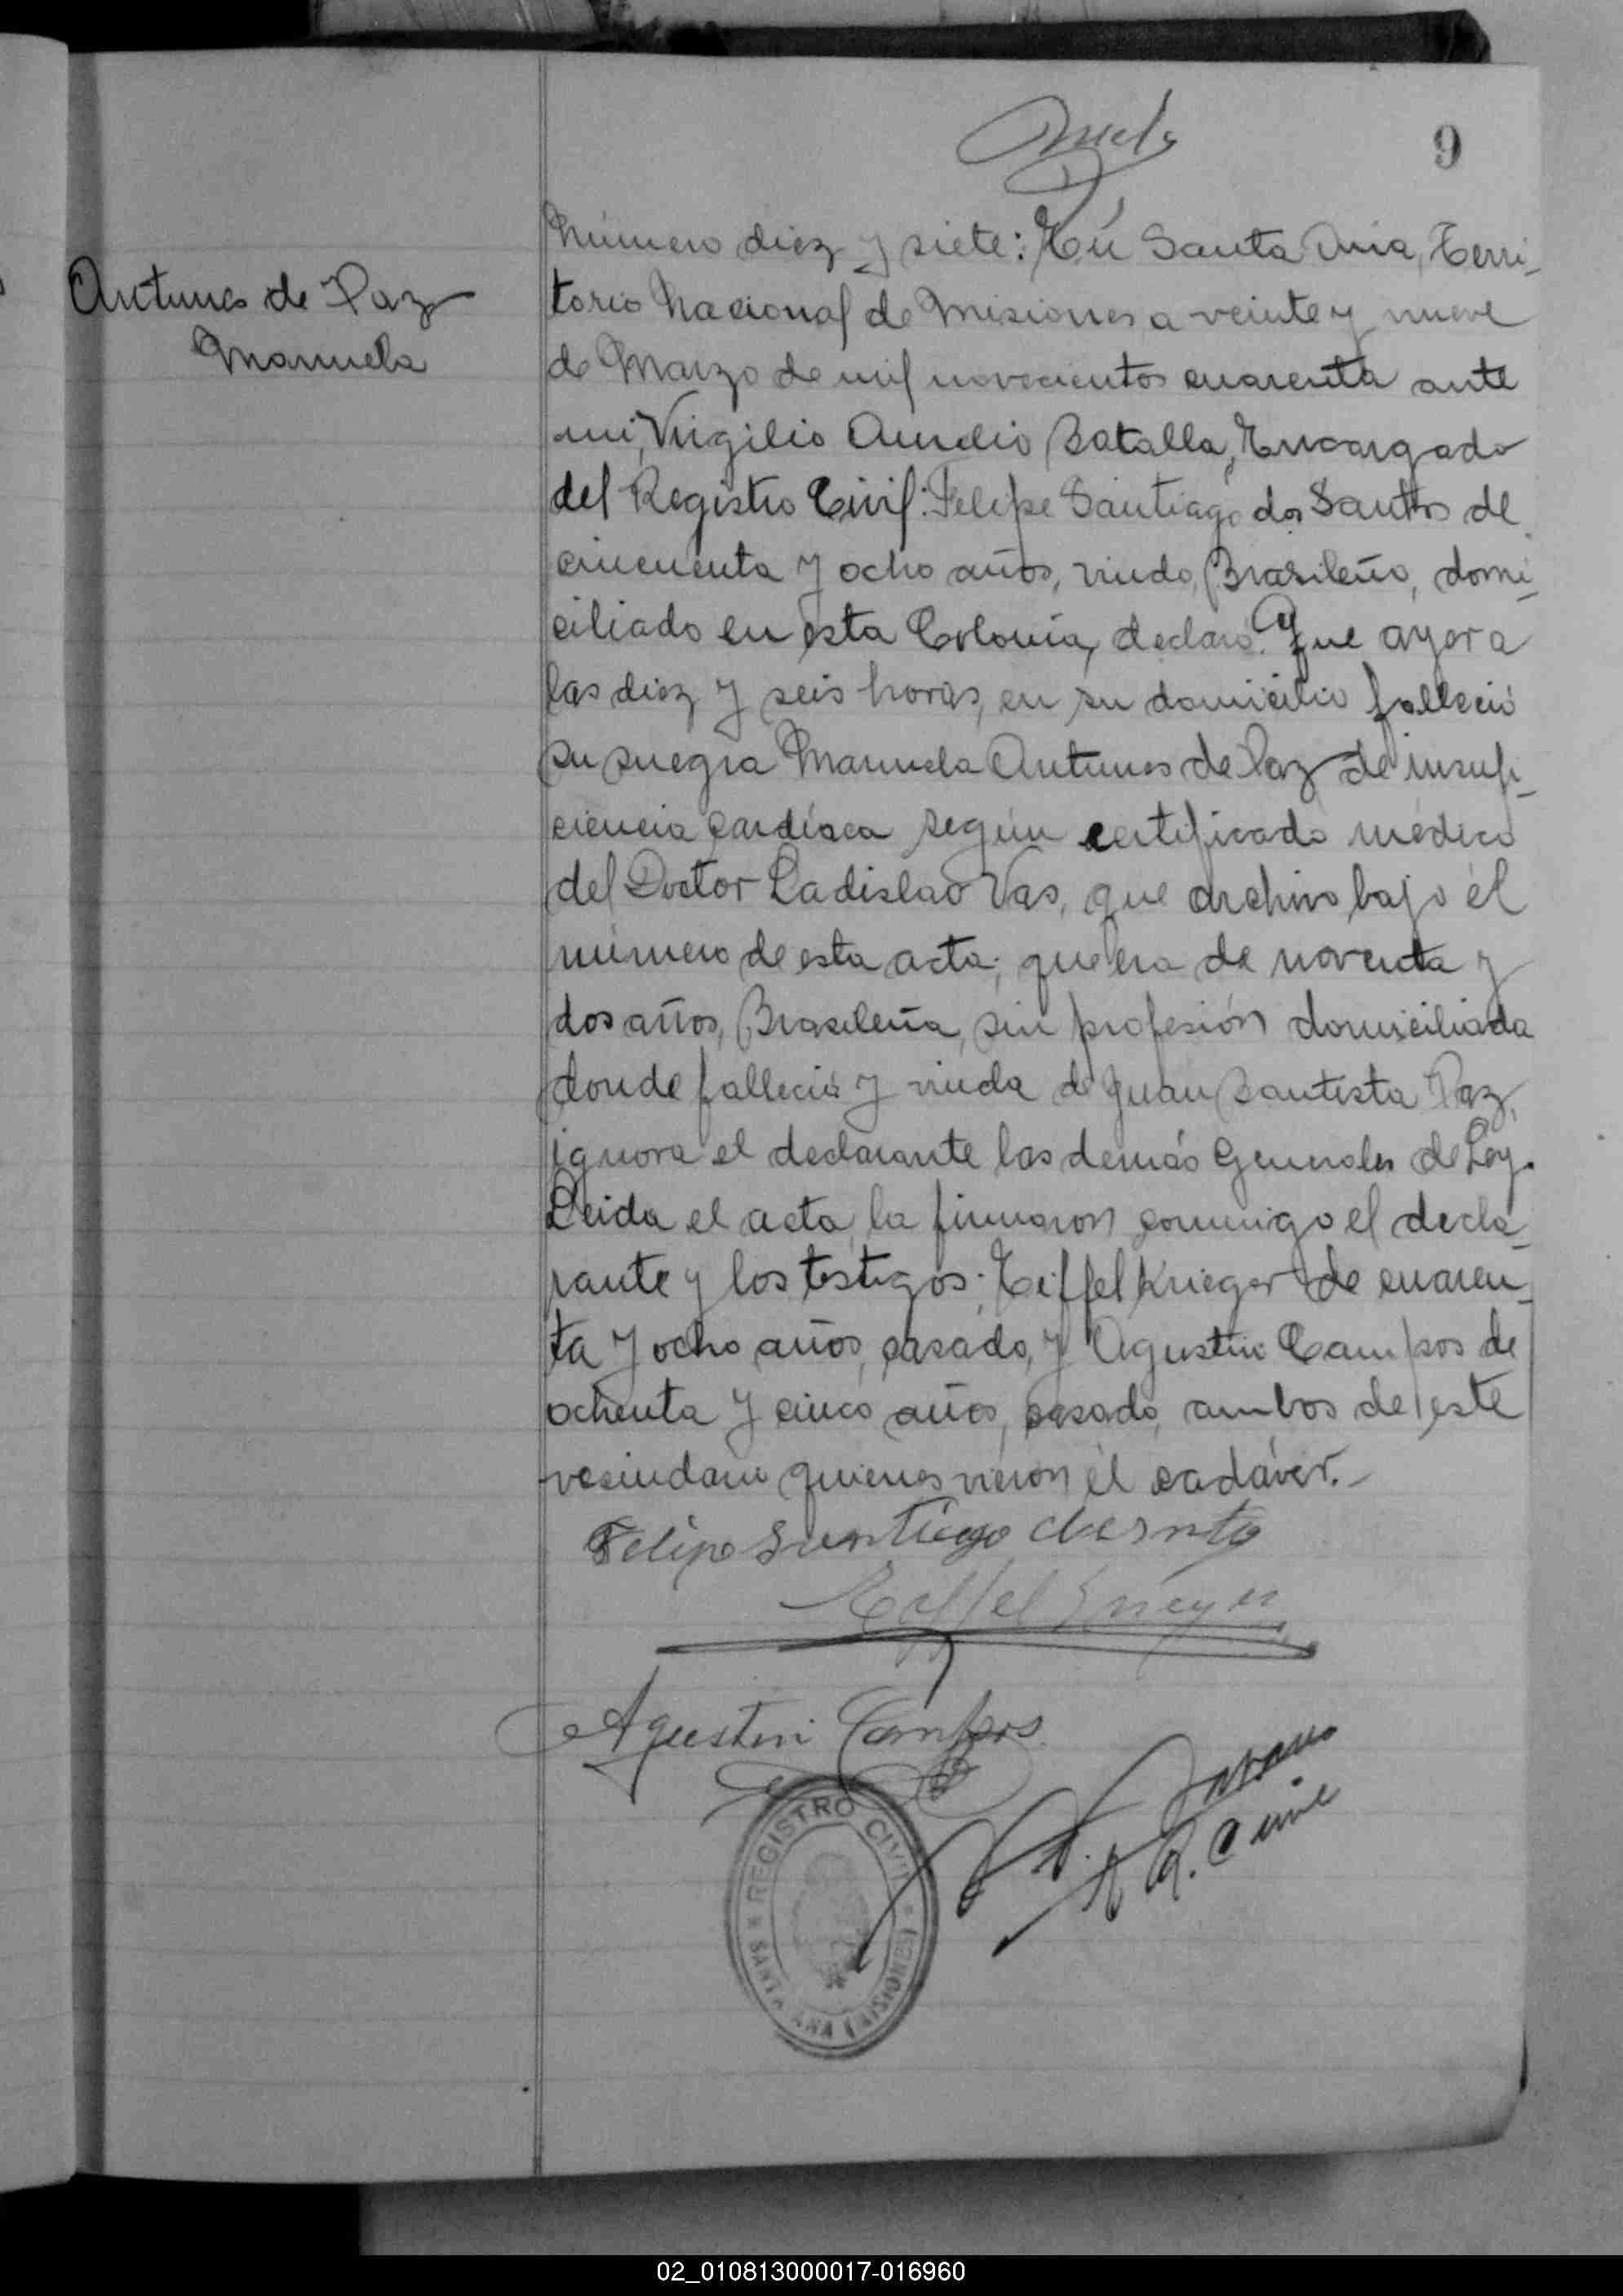 9
Número diez y siete: En Santa Ana, Terri-
Antunes de Paz
Manuela
torio Nacional de Misiones a veinte y nueve
de Marzo de mil novecientos cuarenta ante
mi, Virgilio Aurelio Batalla, Encargado
del Registro Civil: Felipe Santiago dos Santos de
cincuenta y ocho años, viudo, Brasileño, domi-
ciliado en esta Colonia, declaró: Que ayer a
las diez y seis horas, en su domicilio falleció
su suegra Manuela Antunes de Paz de insufi-
ciencia cardíaca según certificado médico
del Doctor Ladislao Vas, que archivo bajo el
número de esta acta; que era de noventa y
dos años, Brasileña, sin profesión domiciliada
donde falleció y viuda de Juan Bautista Paz,
ignora el declarante las demás Generales de Ley.
Leida el acta, la firmaron conmigo el decla-
rante y los testigos: Eiffel Krieger de cuaren-
ta y ocho años, casado, y Agustin Campos de
ochenta y cinco años, casado, ambos de este
vesindario quienes vieron el cadáver.-
Felipe Santiago
Eiffel Krieger
Agustin Campos
REGISTRO CIVIL
SANTA ANA (MISIONES)
02_010813000017-016960